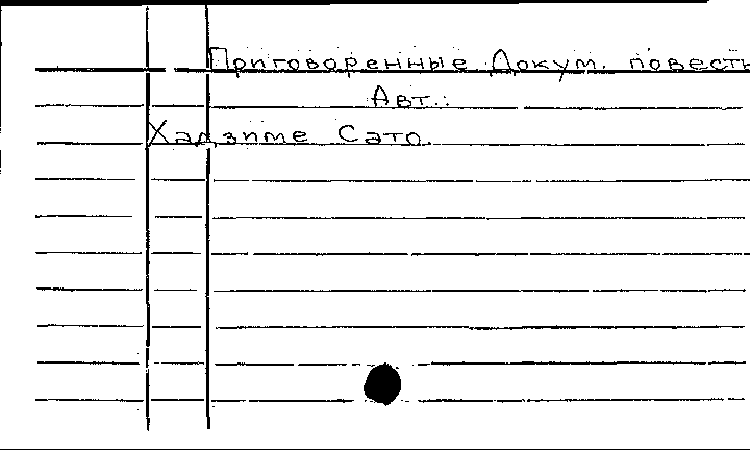 Приговоренные Докум. повесть
Авт.:
Хадзиме Сато.